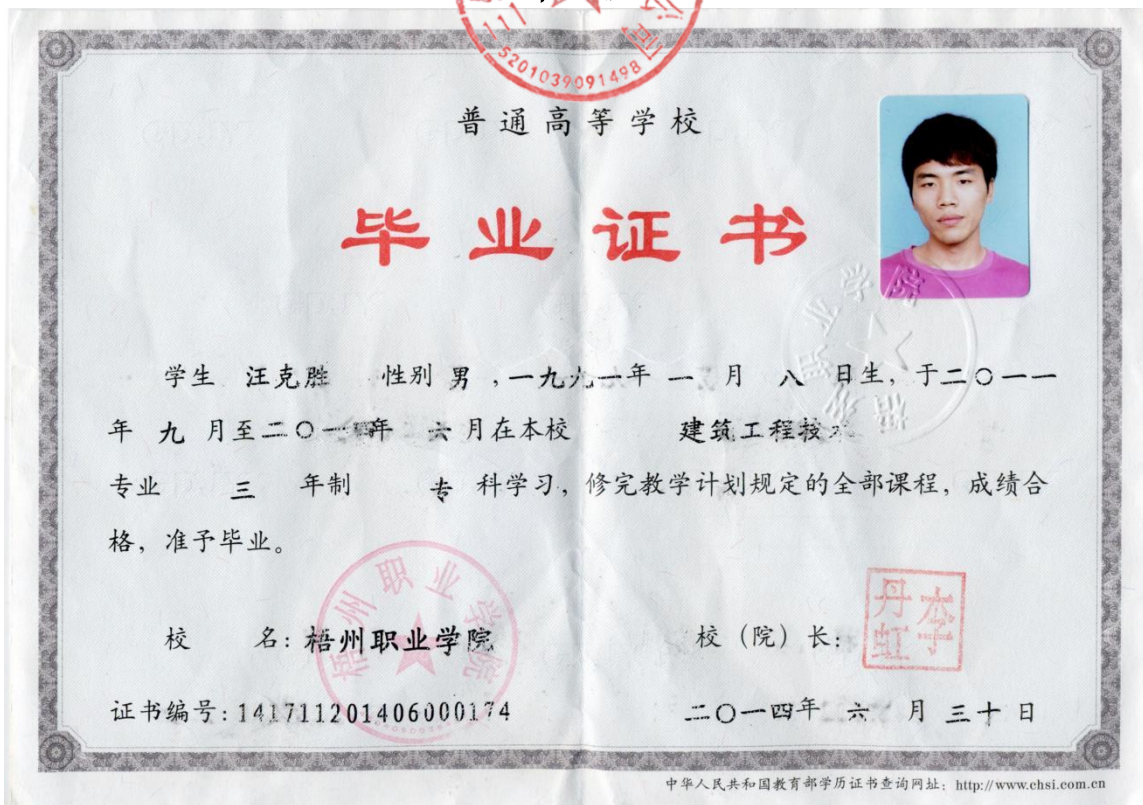 5201039091498
普通高等学校
毕业证书
学生 汪克胜 性别 男 ，一九九一年 一 月 八 日生，于二〇一一
年 九 月至二〇一四年 六 月在本校 建筑工程技术
专业 三 年制 专 科学习，修完教学计划规定的全部课程，成绩合
格，准予毕业。
校 名：梧州职业学院
校（院）长：
李丹虹
证书编号：141711201406000174
二〇一四年 六 月 三十 日
梧州职业学院
中华人民共和国教育部学历证书查询网址：http://www.chsi.com.cn